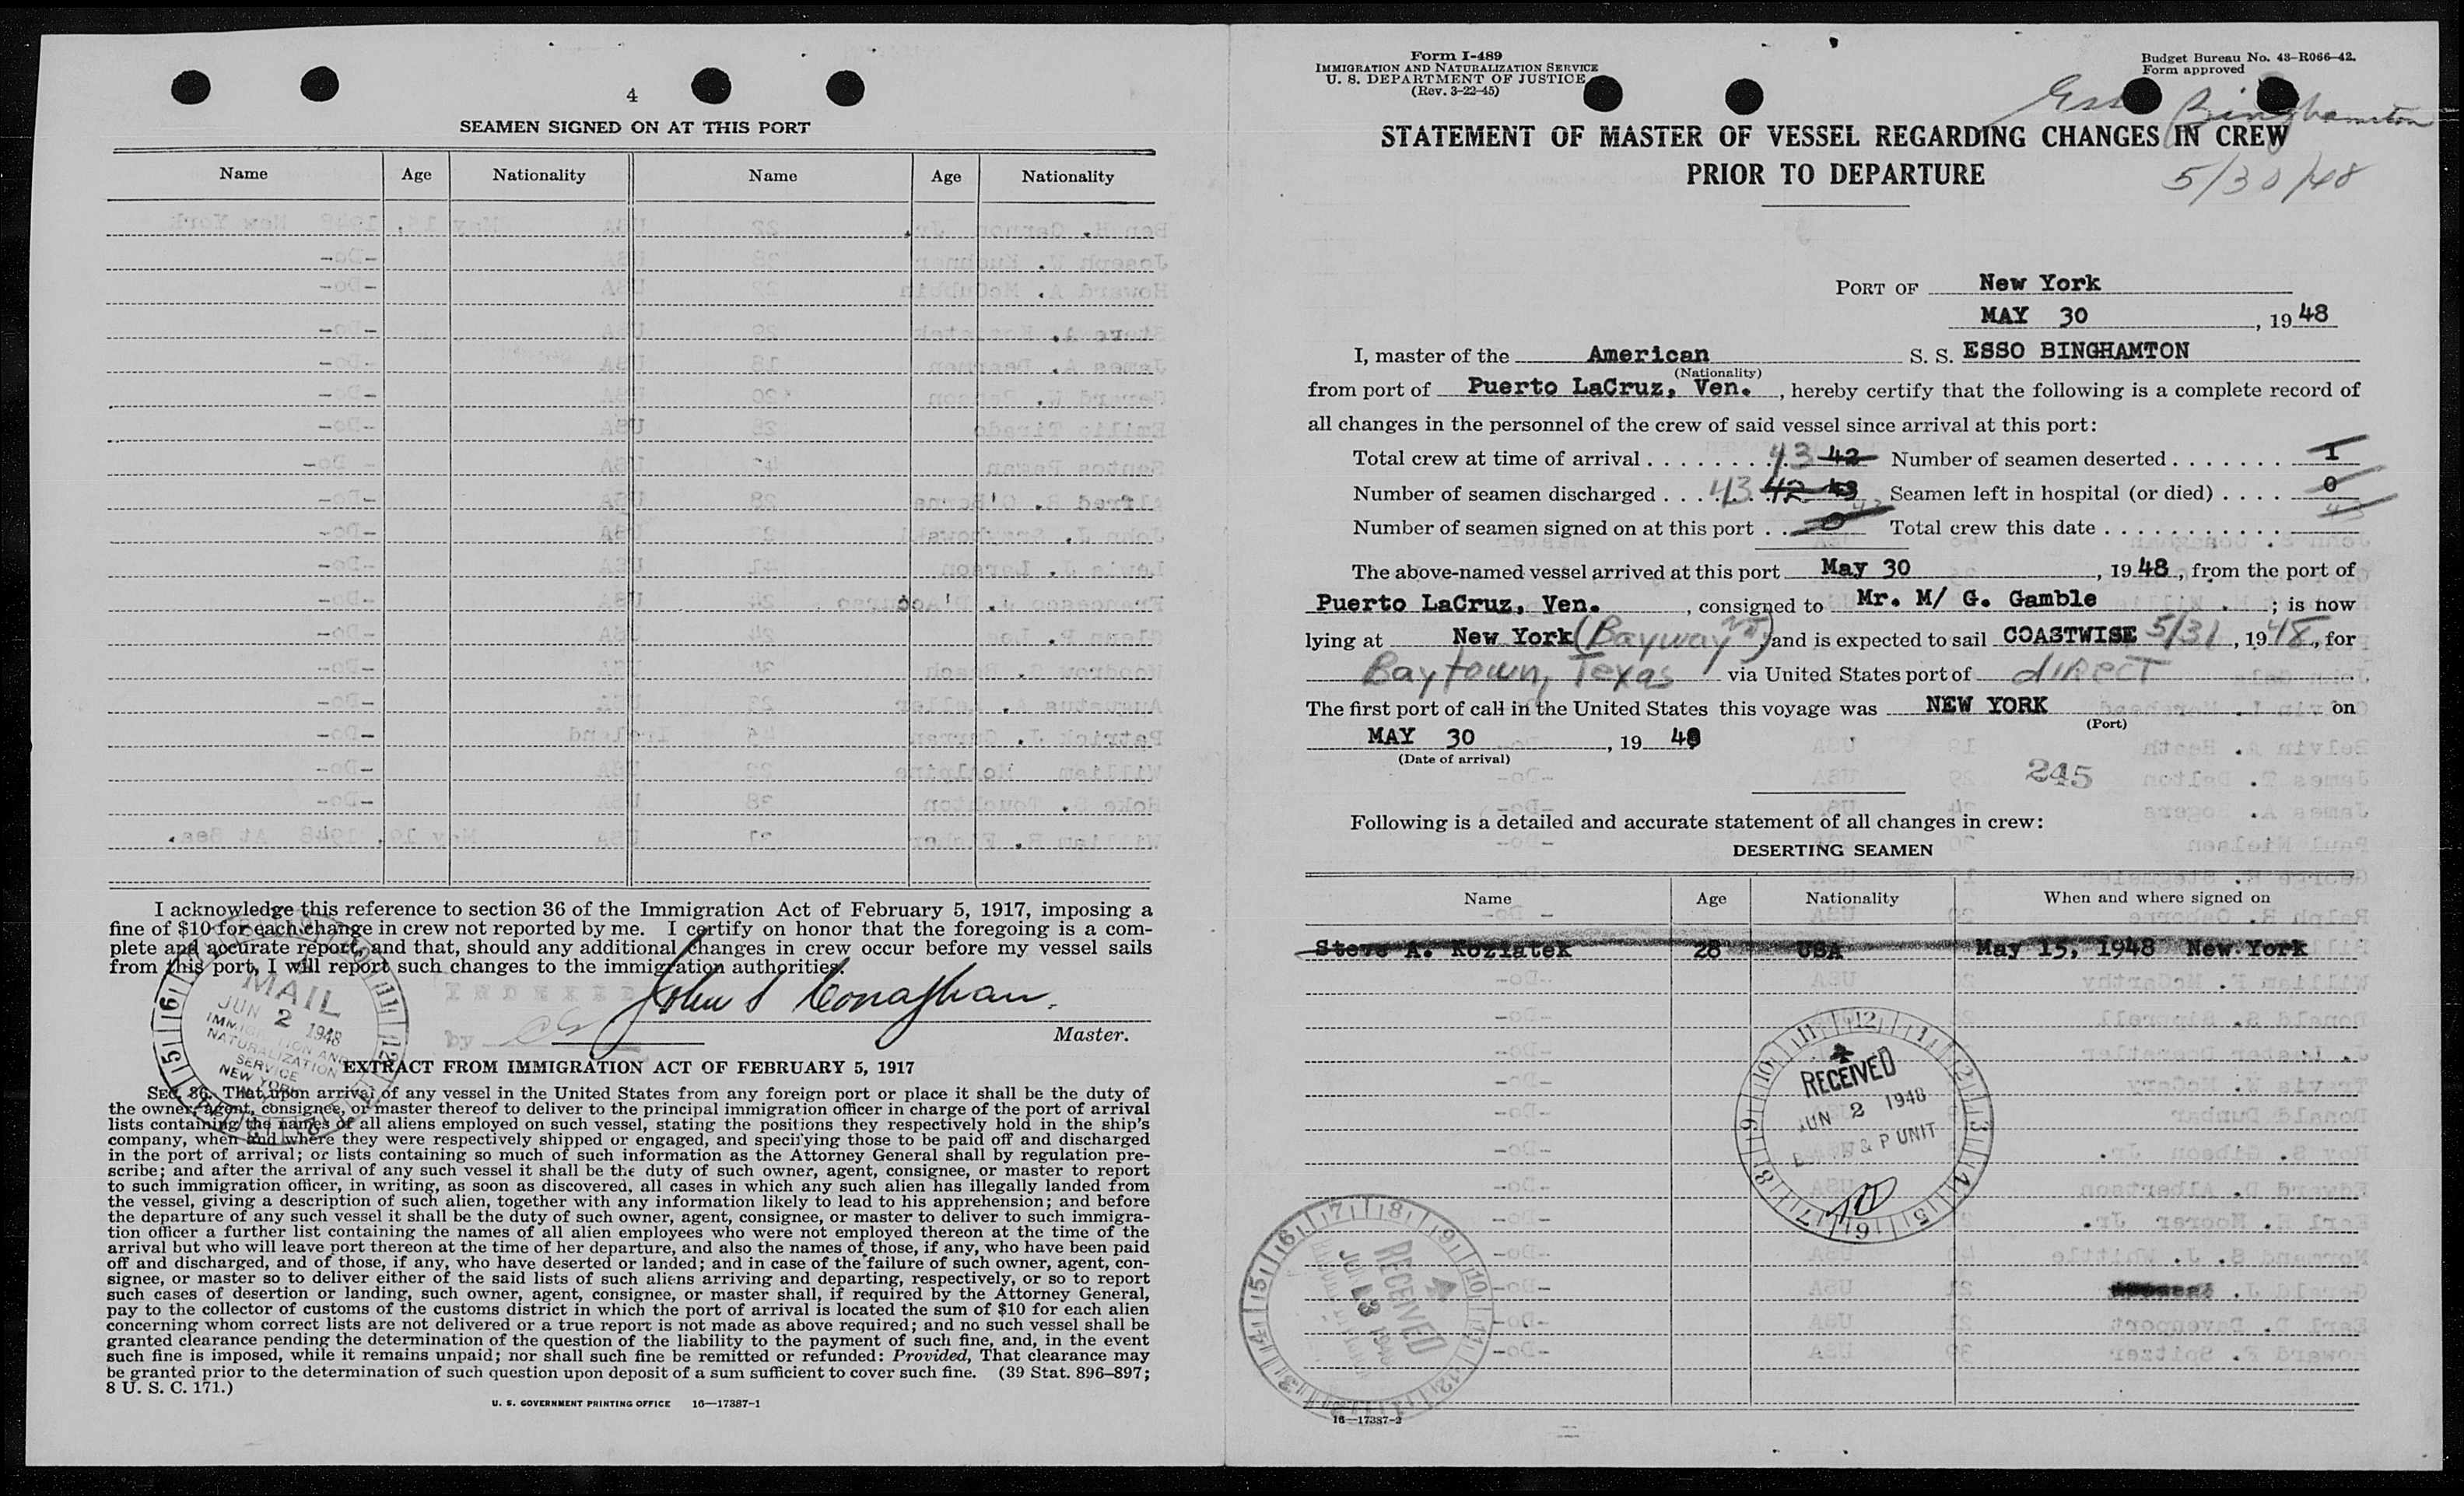 4
SEAMEN SIGNED ON AT THIS PORT
Name Age Nationality Name Age Nationality
I acknowledge this reference to section 36 of the Immigration Act of February 5, 1917, imposing a
fine of $10 for each change in crew not reported by me. I certify on honor that the foregoing is a com-
plete and accurate report, and that, should any additional changes in crew occur before my vessel sails
from this port, I will report such changes to the immigration authorities.
MAIL
JUN 2 1948
IMMIGRATION AND
NATURALIZATION
SERVICE
NEW YORK
by
John S Conaghan.
Master.
EXTRACT FROM IMMIGRATION ACT OF FEBRUARY 5, 1917
SEC. 36. That upon arrival of any vessel in the United States from any foreign port or place it shall be the duty of
the owner, agent, consignee, or master thereof to deliver to the principal immigration officer in charge of the port of arrival
lists containing the names of all aliens employed on such vessel, stating the positions they respectively hold in the ship's
company, when and where they were respectively shipped or engaged, and specifying those to be paid off and discharged
in the port of arrival; or lists containing so much of such information as the Attorney General shall by regulation pre-
scribe; and after the arrival of any such vessel it shall be the duty of such owner, agent, consignee, or master to report
to such immigration officer, in writing, as soon as discovered, all cases in which any such alien has illegally landed from
the vessel, giving a description of such alien, together with any information likely to lead to his apprehension; and before
the departure of any such vessel it shall be the duty of such owner, agent, consignee, or master to deliver to such immigra-
tion officer a further list containing the names of all alien employees who were not employed thereon at the time of the
arrival but who will leave port thereon at the time of her departure, and also the names of those, if any, who have been paid
off and discharged, and of those, if any, who have deserted or landed; and in case of the failure of such owner, agent, con-
signee, or master so to deliver either of the said lists of such aliens arriving and departing, respectively, or so to report
such cases of desertion or landing, such owner, agent, consignee, or master shall, if required by the Attorney General,
pay to the collector of customs of the customs district in which the port of arrival is located the sum of $10 for each alien
concerning whom correct lists are not delivered or a true report is not made as above required; and no such vessel shall be
granted clearance pending the determination of the question of the liability to the payment of such fine, and, in the event
such fine is imposed, while it remains unpaid; nor shall such fine be remitted or refunded: Provided, That clearance may
be granted prior to the determination of such question upon deposit of a sum sufficient to cover such fine. (39 Stat. 896–897;
8 U. S. C. 171.)
U. S. GOVERNMENT PRINTING OFFICE 16—17387-1
Form I-489
IMMIGRATION AND NATURALIZATION SERVICE
U. S. DEPARTMENT OF JUSTICE
(Rev. 3-22-45)
Budget Bureau No. 43-R066-42.
Form approved
Esso Binghamton
STATEMENT OF MASTER OF VESSEL REGARDING CHANGES IN CREW
PRIOR TO DEPARTURE
5/30/48
PORT OF New York
MAY 30, 1948
I, master of the American S. S. ESSO BINGHAMTON
(Nationality)
from port of Puerto LaCruz, Ven., hereby certify that the following is a complete record of
all changes in the personnel of the crew of said vessel since arrival at this port:
Total crew at time of arrival 43 42 Number of seamen deserted 1
Number of seamen discharged 43 42 43 Seamen left in hospital (or died) 0
Number of seamen signed on at this port 0 Total crew this date 43
The above-named vessel arrived at this port May 30, 1948, from the port of
Puerto LaCruz, Ven., consigned to Mr. M/ G. Gamble; is now
lying at New York (Bayway NJ) and is expected to sail COASTWISE 5/31, 1948, for
Baytown, Texas via United States port of direct
The first port of call in the United States this voyage was NEW YORK on
(Port)
MAY 30, 1948
(Date of arrival)
245
Following is a detailed and accurate statement of all changes in crew:
DESERTING SEAMEN
Name Age Nationality When and where signed on
Steve A. Koziatek 28 USA May 15, 1948 New York
RECEIVED
JUN 2 1948
& P UNIT
RECEIVED
16—17387-2